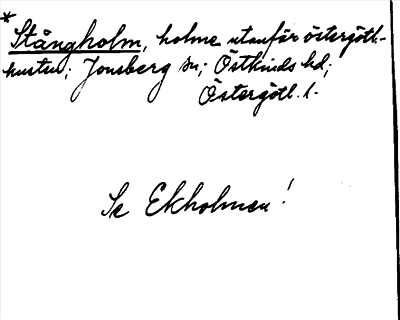 * Stångholm, holme utanför östergötl.-
kusten; Jonsberg sn; Östkinds hd;
Östergötl. l.
Se Ekholmen!